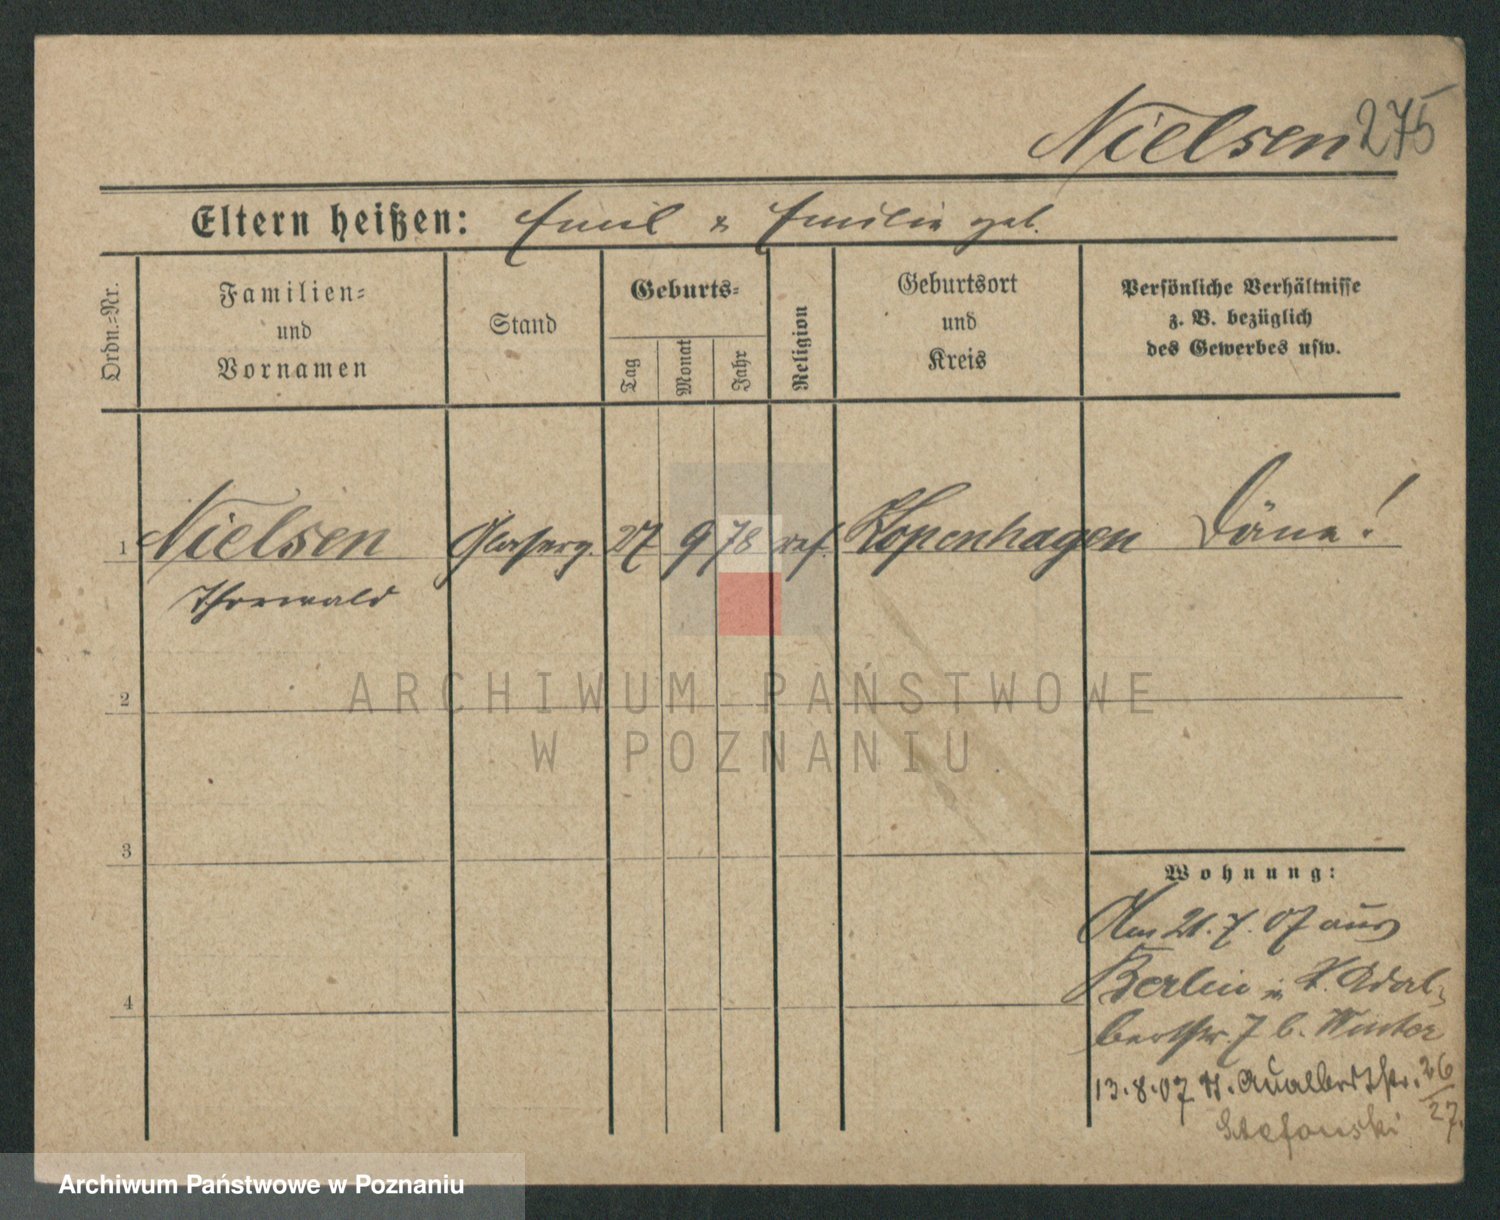 Nielsen 275
Eltern heißen: Emil & Emilie geb.
Ordn.=Nr.
Familien=
und
Vornamen
Stand
Geburts=
Tag
Monat
Jahr
Religion
Geburtsort
und
Kreis
Persönliche Verhältnisse
z. B. bezüglich
des Gewerbes usw.
1 Nielsen 27 9 78 ref. Kopenhagen Däne!
Thorwald
ARCHIWUM PAŃSTWOWE
W POZNANIU
2
3
4
Wohnung:
Am 21.7.07 aus
Berlin in St. Adal=
bertstr. 7 b. Winter
13.8.07 St. Adalbertstr. 26/27.
Stefanski
Archiwum Państwowe w Poznaniu